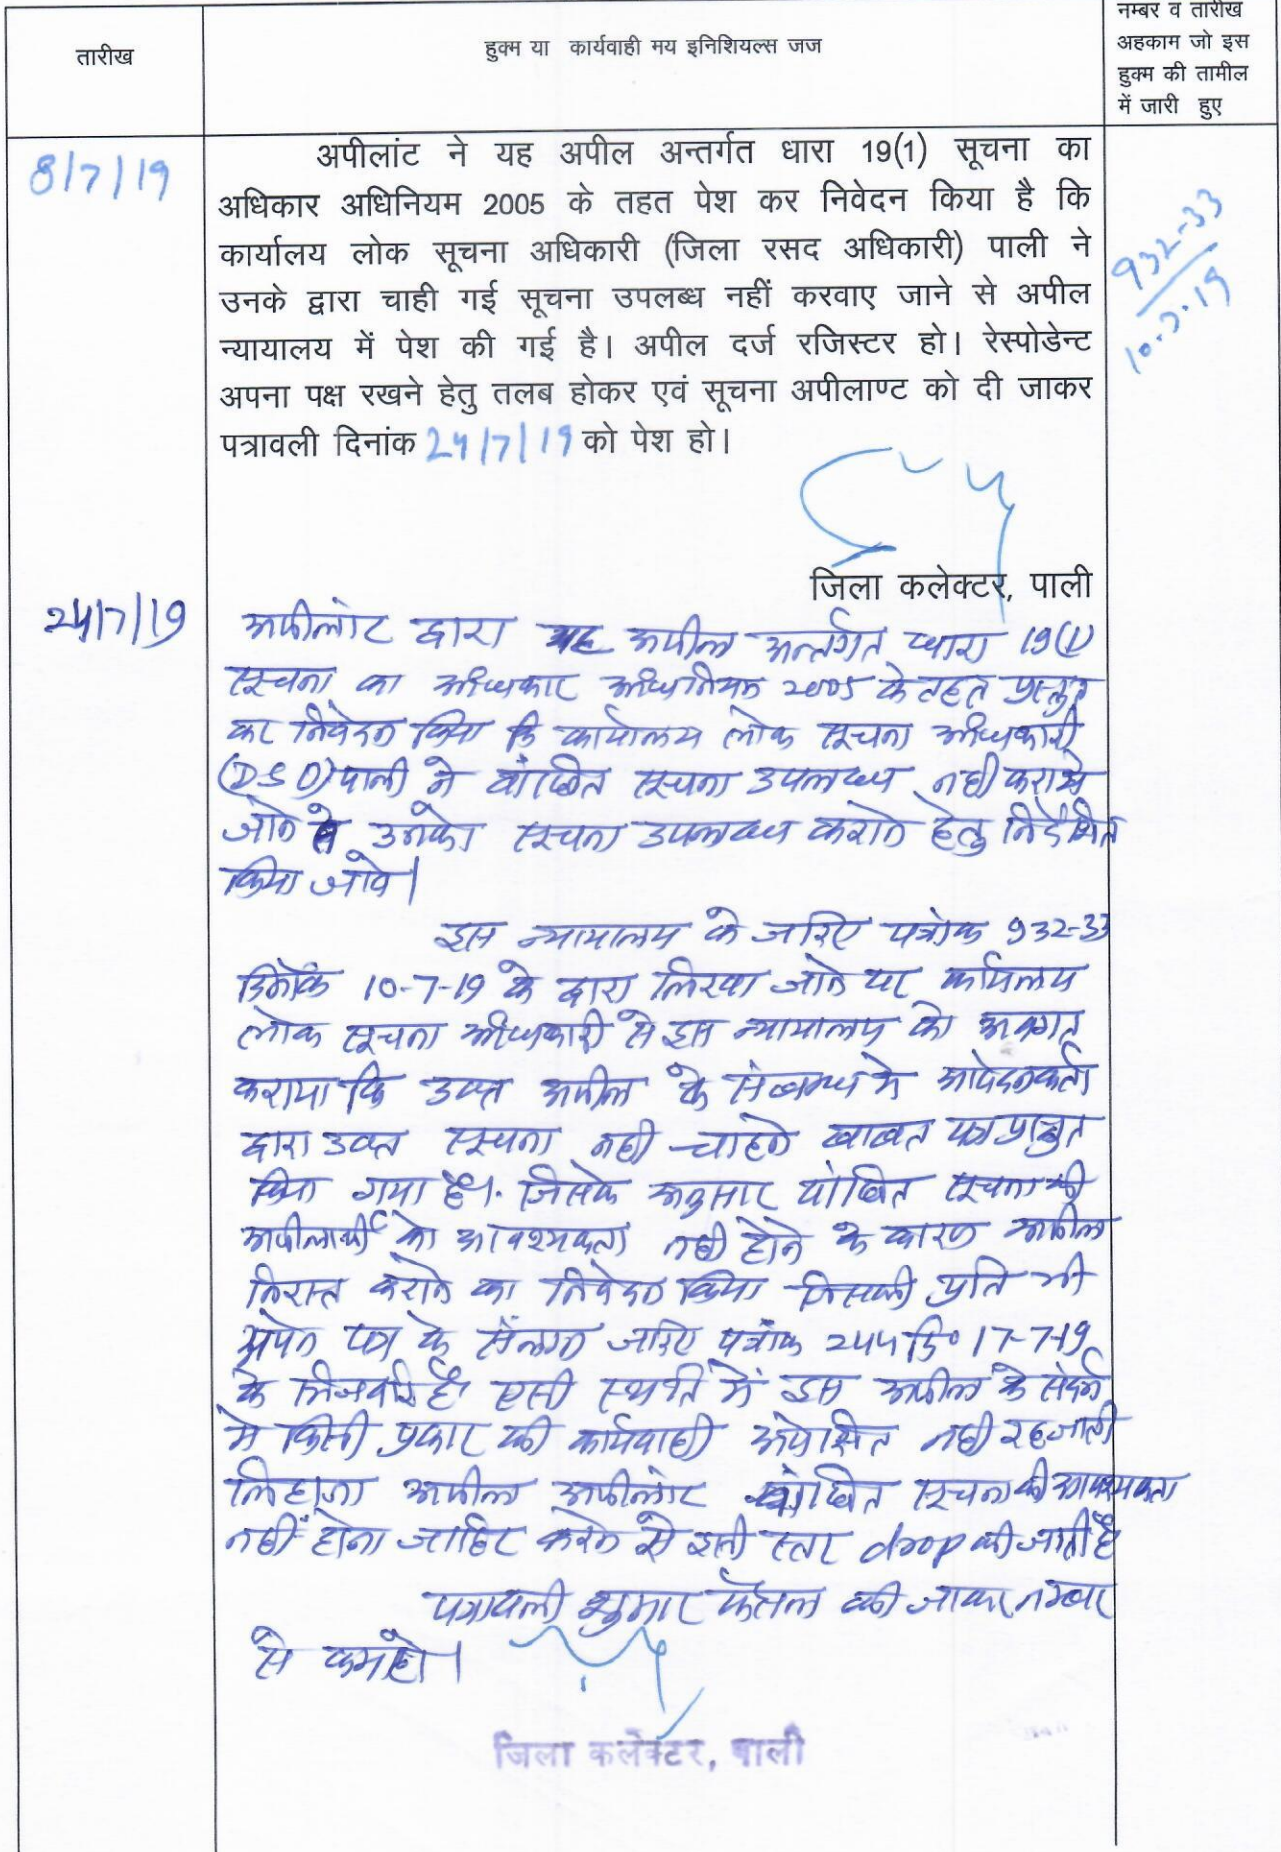 तारीख
हुक्म या कार्यवाही मय इनिशियल्स जज
नम्बर व तारीख
अहकाम जो इस
हुक्म की तामील
में जारी हुए
8/7/19
अपीलांट ने यह अपील अन्तर्गत धारा 19(1) सूचना का
अधिकार अधिनियम 2005 के तहत पेश कर निवेदन किया है कि
कार्यालय लोक सूचना अधिकारी (जिला रसद अधिकारी) पाली ने
उनके द्वारा चाही गई सूचना उपलब्ध नहीं करवाए जाने से अपील
न्यायालय में पेश की गई है। अपील दर्ज रजिस्टर हो। रेस्पोडेन्ट
अपना पक्ष रखने हेतु तलब होकर एवं सूचना अपीलाण्ट को दी जाकर
पत्रावली दिनांक 24/7/19 को पेश हो।
932-33
10.7.19
जिला कलेक्टर, पाली
24/7/19
अपीलांट द्वारा यह अपील अन्तर्गत धारा 19(1)
सूचना का अधिकार अधिनियम 2005 के तहत प्रस्तुत
कर निवेदन किया कि कार्यालय लोक सूचना अधिकारी
(DSO) पाली ने वांछित सूचना उपलब्ध नही कराये
जाने से उनको सूचना उपलब्ध कराने हेतु निर्देशित
किया जावे।
इस न्यायालय के जरिए पत्रांक 932-33
दिनांक 10-7-19 के द्वारा लिखा जाने पर कार्यालय
लोक सूचना अधिकारी ने इस न्यायालय को अवगत
कराया कि उक्त अपील के संबन्ध मे आवेदनकर्ता
द्वारा उक्त सूचना नही चाहने बाबत पत्र प्रस्तुत
किया गया है। जिसके अनुसार वांछित सूचना की
अपीलार्थी को आवश्यकता नही होने के कारण अपील
निरस्त कराने का निवेदन किया जिसकी प्रति भी
अपने पत्र के संलग्न जरिए पत्रांक 244 दि० 17-7-19
के भिजवाई है। एसी स्थति में इस अपील के संदर्भ
मे किसी प्रकार की कार्यवाही अपेक्षित नही रह जाती
लिहाजा अपील अपीलांट वांछित सूचना की आवश्यकता
नही होना जाहिर करने से इसी स्तर drop की जाती है
पत्रावली शुमार फैसल की जाकर नम्बर
से कम हो।
जिला कलेक्टर, पाली